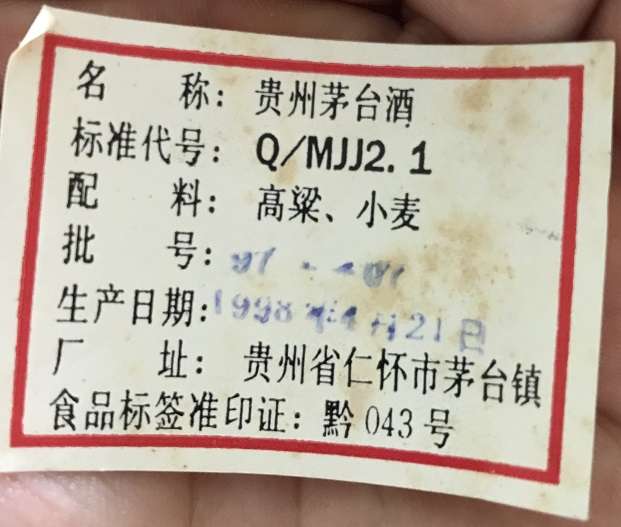 名 称: 贵州茅台酒
标准代号: Q/MJJ2.1
配 料: 高粱、小麦
批 号:
生产日期: 1998年4月21日
厂 址: 贵州省仁怀市茅台镇
食品标签准印证: 黔043号